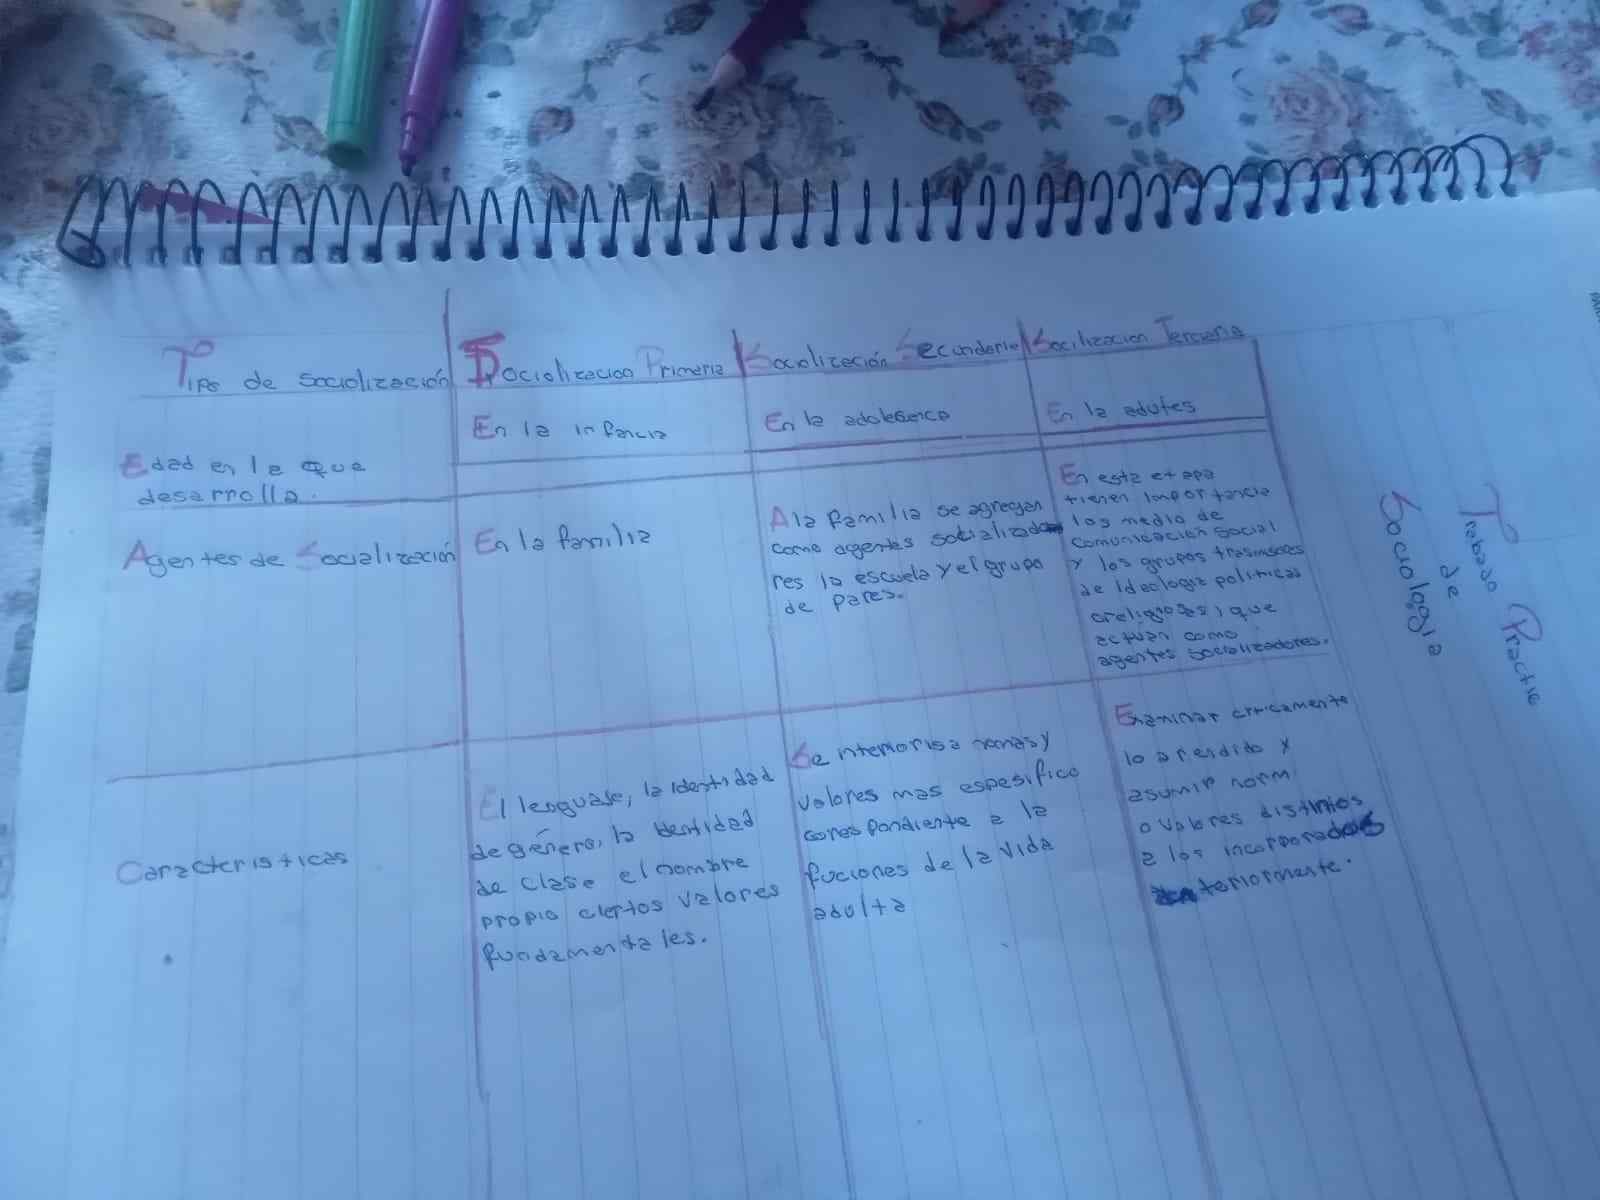 Tipo de socialización
Socializacion Primeria
Socialización Secundaria
Socilizacion Terceria
Edad en la que
desarrolla.
En la infancia
En la adolesenca
En la adutes
Agentes de Socialización
En la familia
A la familia se agregan
como agentes socializado
res la escuela y el grupo
de pares.
En esta etapa
tienen importancia
los medio de
comunicación social
y los grupos trasmisores
de ideologia politicas
o religiosas, que
actuan como
agentes socializadores.
Caracteristicas
El lenguaje, la identidad
de género, la identidad
de clase el nombre
propio ciertos valores
fundamentales.
Se interiorisa normas y
valores mas espesifico
correspondiente a la
fuciones de la vida
adulta
Examinar criticamente
lo aprendido y
asumir norm
o valores distintos
a los incorporados
anteriormente.
Trabajo Practic
de
Sociología